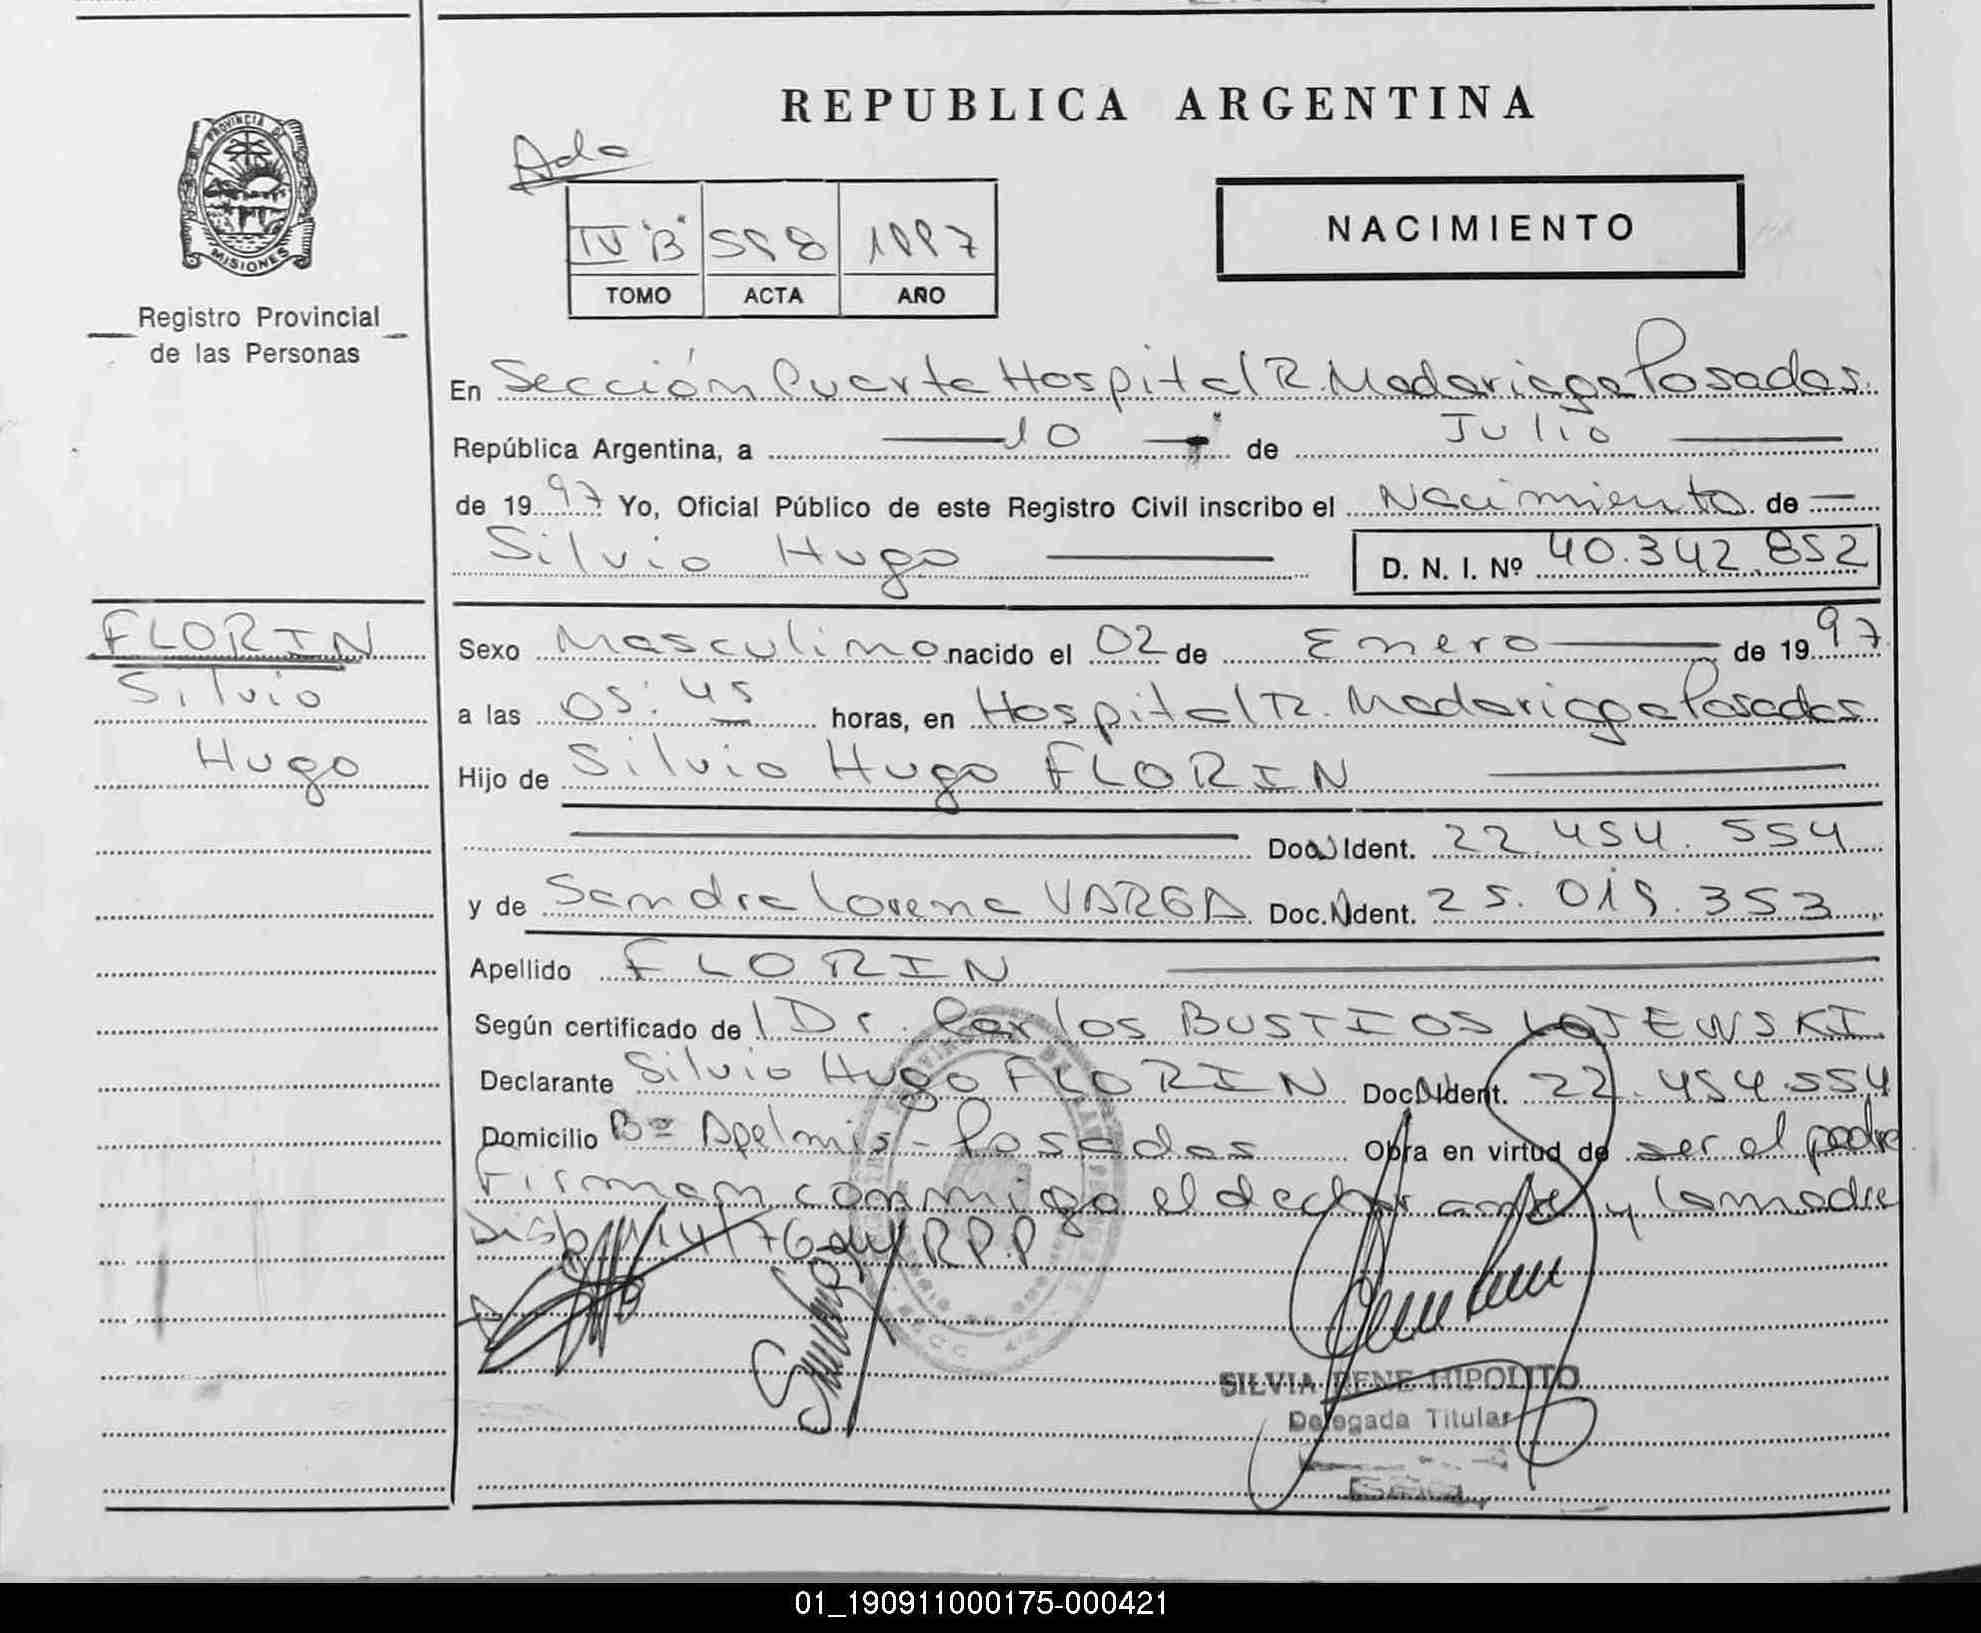 REPUBLICA ARGENTINA
PROVINCIA DE
MISIONES
Registro Provincial
de las Personas
Ada
IV "B" 598 1997
TOMO ACTA AÑO
NACIMIENTO
En Sección Cuarta Hospital R. Madariaga Posadas
República Argentina, a 10 de Julio
de 1997 Yo, Oficial Público de este Registro Civil inscribo el Nacimiento de
Silvio Hugo D. N. I. Nº 40.342.852
FLORIN
Silvio
Hugo
Sexo Masculino nacido el 02 de Enero de 1997
a las 05:45 horas, en Hospital R. Madariaga Posadas
Hijo de Silvio Hugo FLORIN
Doc. Ident. 22.454.554
y de Sandra Lorena VARGA Doc. Ident. 25.019.353
Apellido FLORIN
Según certificado del Dr. Carlos BUSTIOS LOJEWSKI
Declarante Silvio Hugo FLORIN Doc. Ident. 22.454.554
Domicilio Bº Apelmis - Posadas Obra en virtud de ser el padre
Firman conmigo el declarante y la madre
Disp 114/76 del RPP
SILVIA RENE HIPOLITO
Delegada Titular
01_190911000175-000421